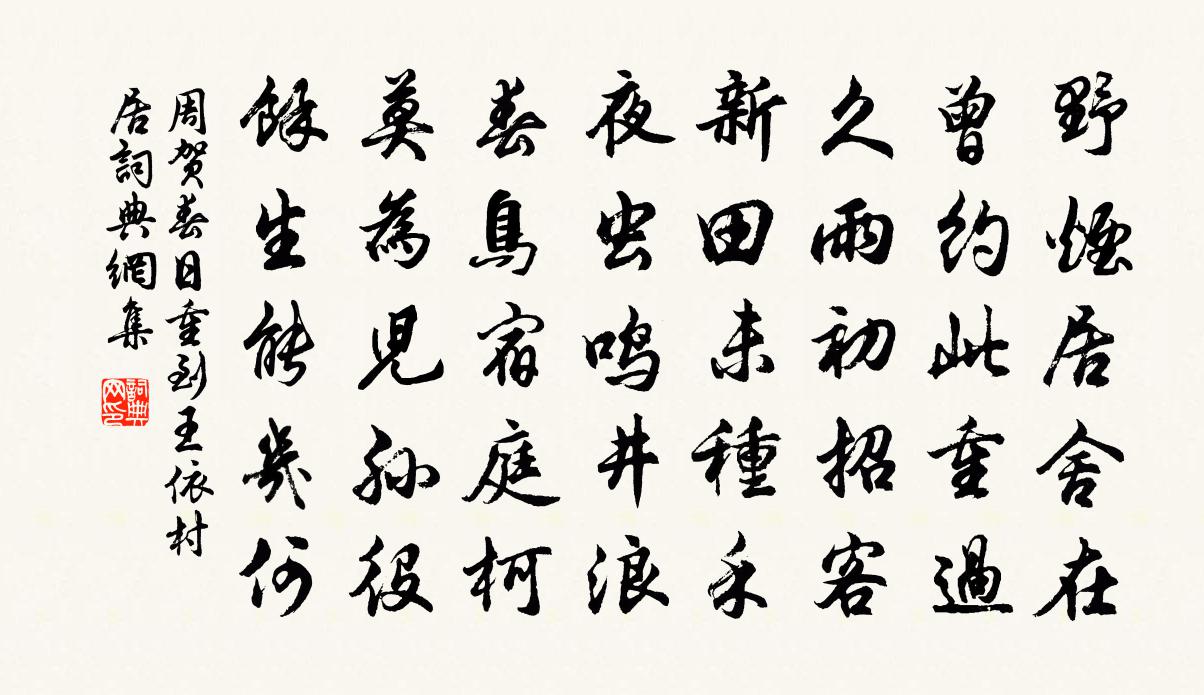 野煙居舍在
曾約此重過
久雨初招客
新田未種禾
夜虫鸣井浪
春鳥宿庭柯
莫為兒孫役
餘生能幾何
周贺春日重到王依村
居詞典網集
詞典网印